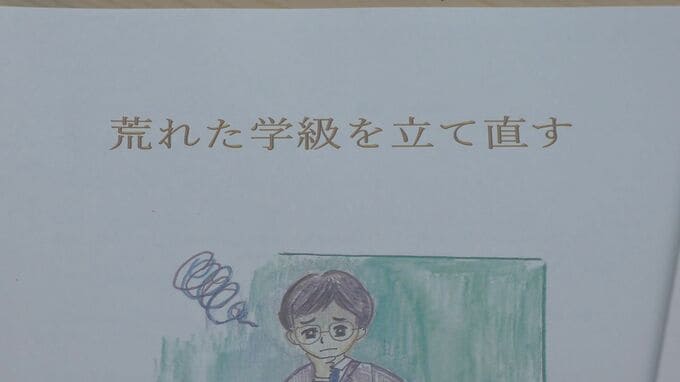 荒れた学級を立て直す